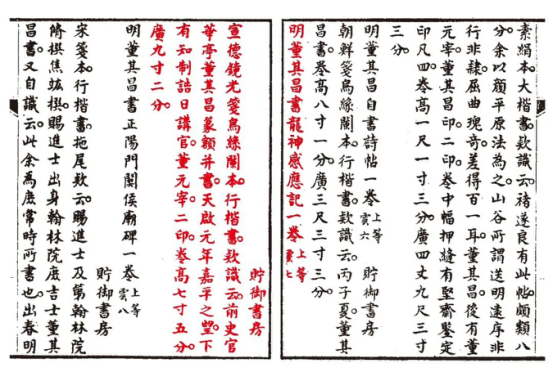 素絹本。大楷書。欵識云。褚遂良有此帖。頗類八
分。余以顔平原法為之。山谷所謂送明遠序。非
行非隸。屈曲瑰奇。差得百一耳。董其昌。後有董
元宰。董其昌印。二印。卷中幅押縫有堅齋鑒定
印凡四。卷高一尺一寸三分。廣四丈九尺三寸
三分。
明董其昌自書詩帖一卷 上等 雲六 貯御書房
朝鮮箋烏絲闌本。行楷書。欵識云。丙子夏。董其
昌書。卷高八寸一分。廣三尺三寸三分。
明董其昌書龍神感應記一卷 上等 雲七
貯御書房
宣德鏡光箋烏絲闌本。行楷書。欵識云。前史官
華亭董其昌篆額并書。天啟元年嘉平之望。下
有知制誥日講官。董元宰。二印。卷高七寸五分。
廣九寸二分。
明董其昌書正陽門關侯廟碑一卷 上等 雲八
貯御書房
宋箋本。行楷書。拖尾欵云。賜進士及第翰林院
脩撰焦竑撰。賜進士出身翰林院庶吉士董其
昌書。又自識云。此余為庶常時所書也。出春明